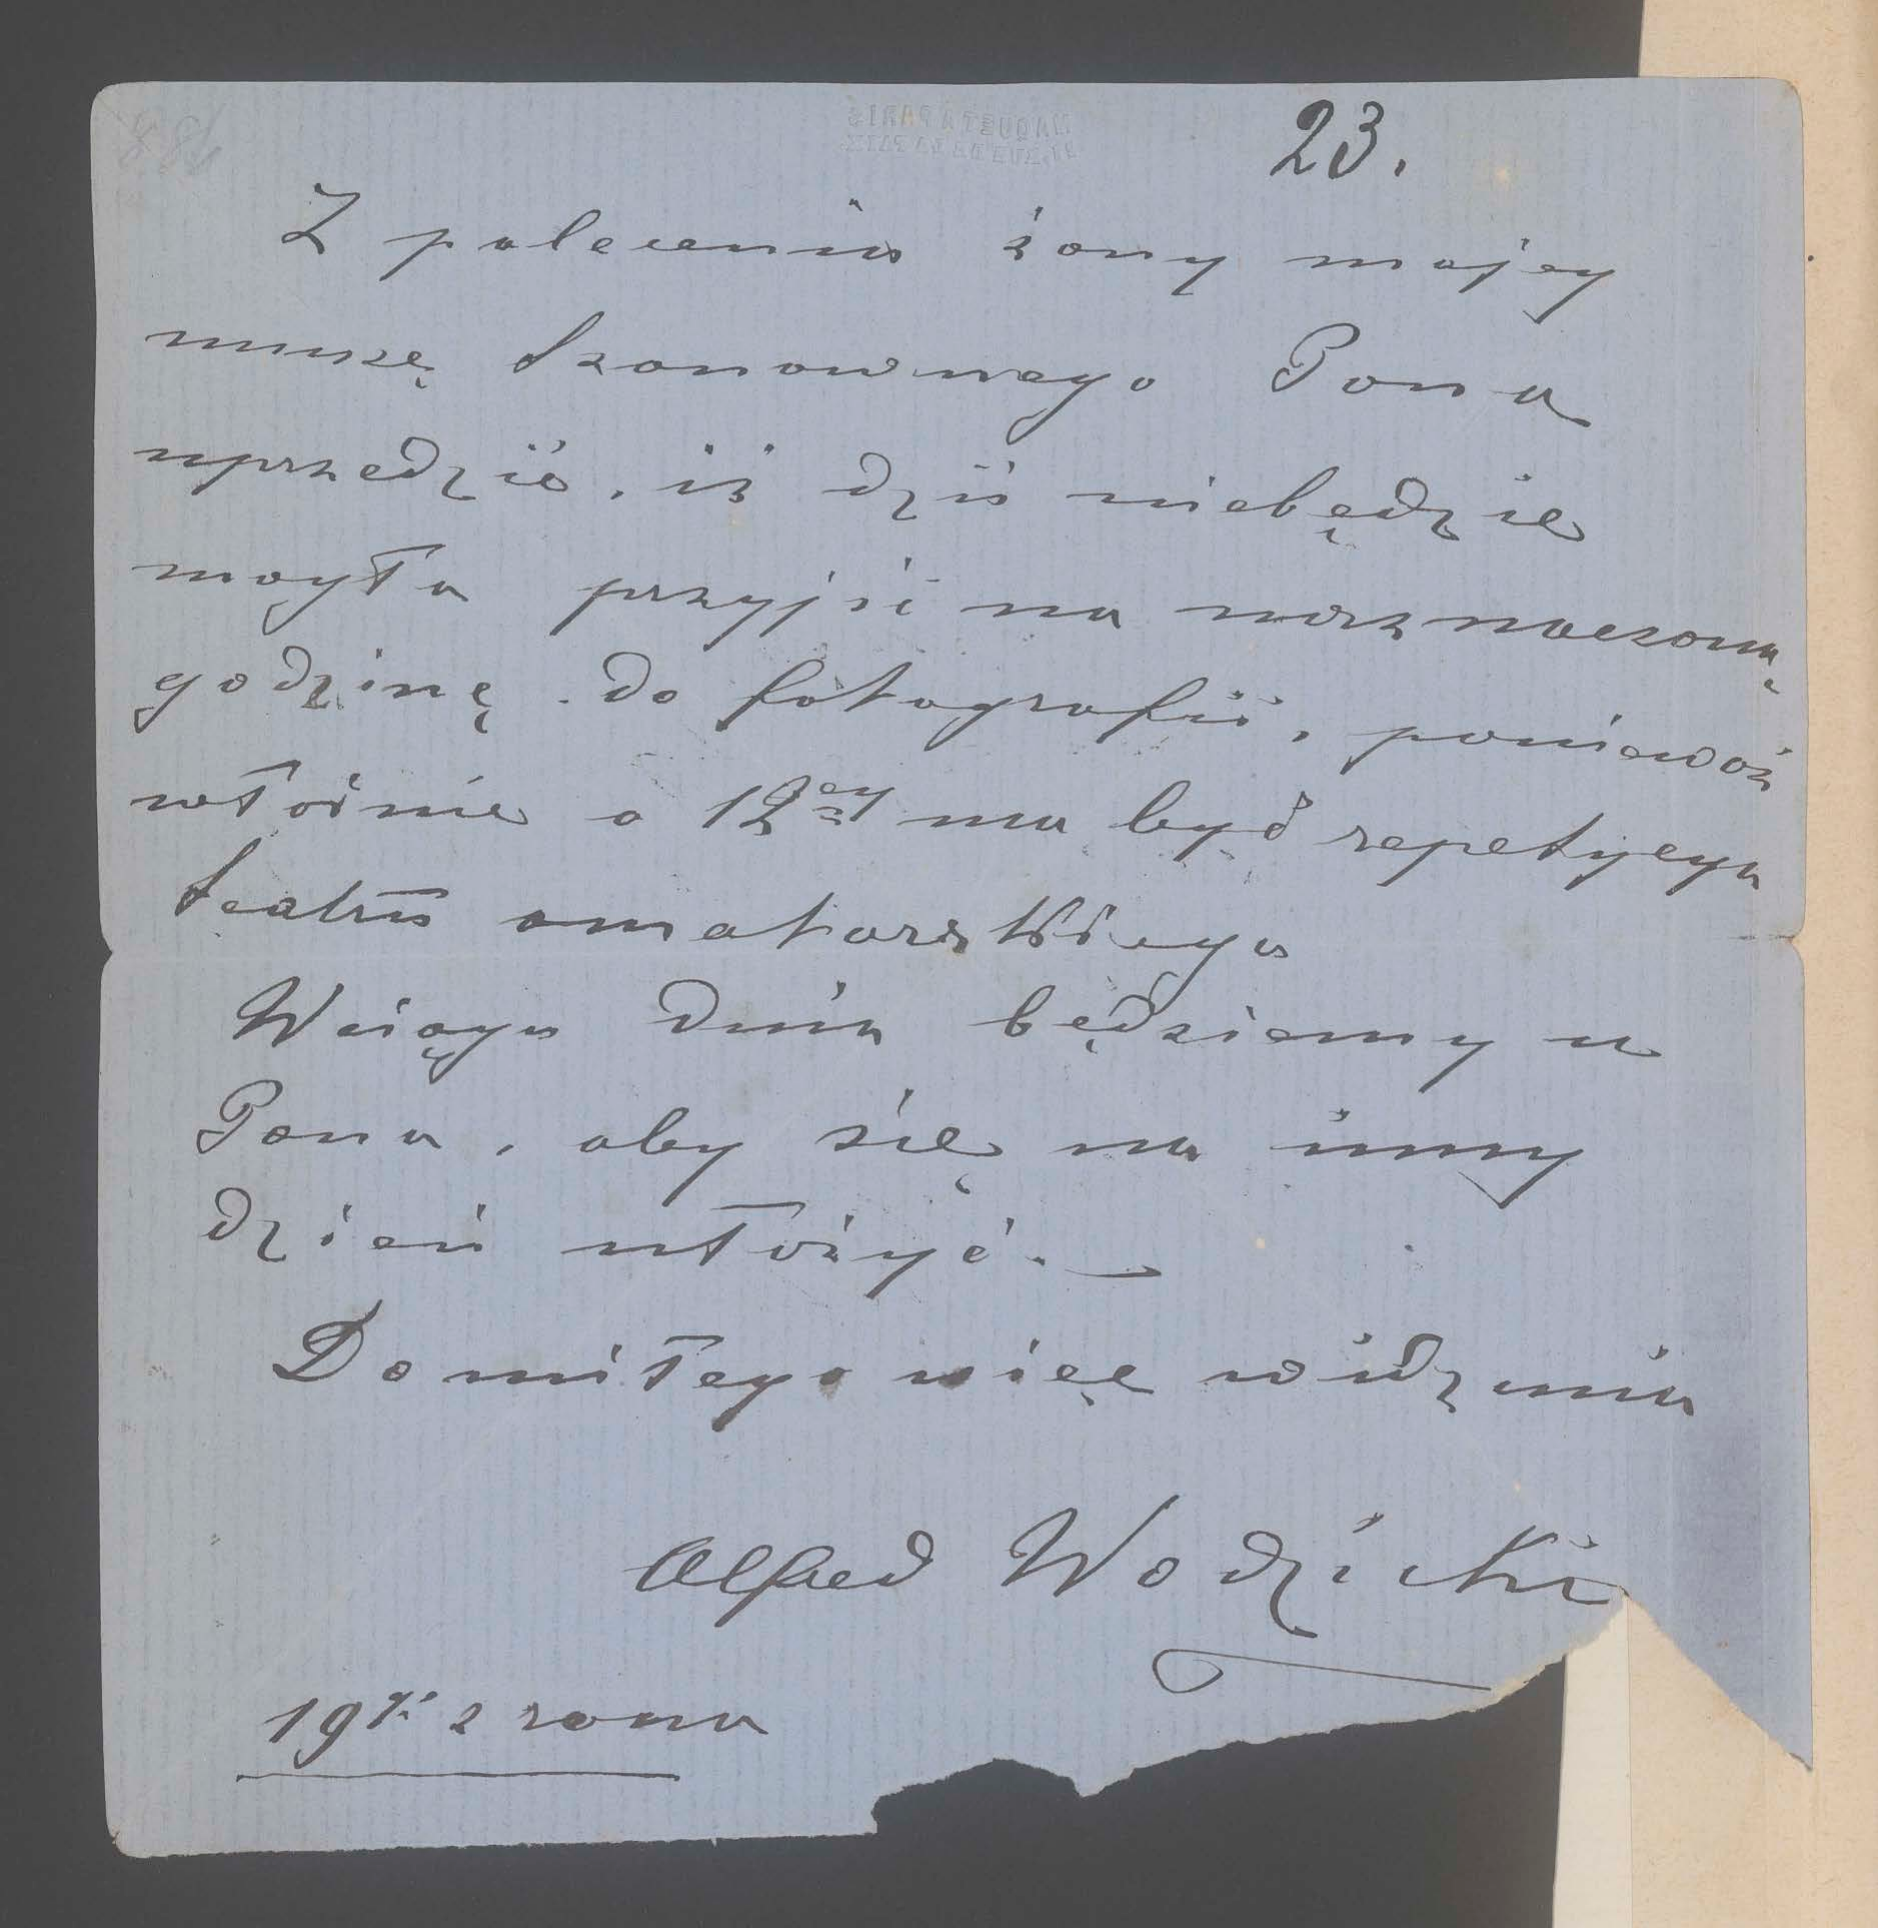 23.
Z polecenia żony mojey
muszę Szanownego Pana
uprzedzić, iż dziś niebędzie
mogła przyjść na naznaczoną
godzinę do fotografii, ponieważ
właśnie o 12ey ma być repetycya
teatru amatorskiego
Wciągu dnia będziemy u
Pana, aby się na inny
dzień ułożyć.
Do miłego więc widzenia
Alfred Wodzicki
19 z rana